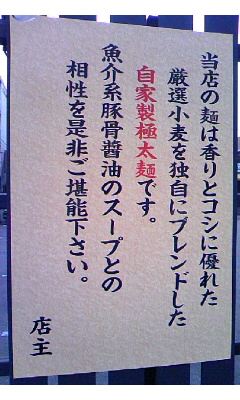 当店の麺は香りとコシに優れた
厳選小麦を独自にブレンドした
自家製極太麺です。
魚介系豚骨醤油のスープとの
相性を是非ご堪能下さい。
店主